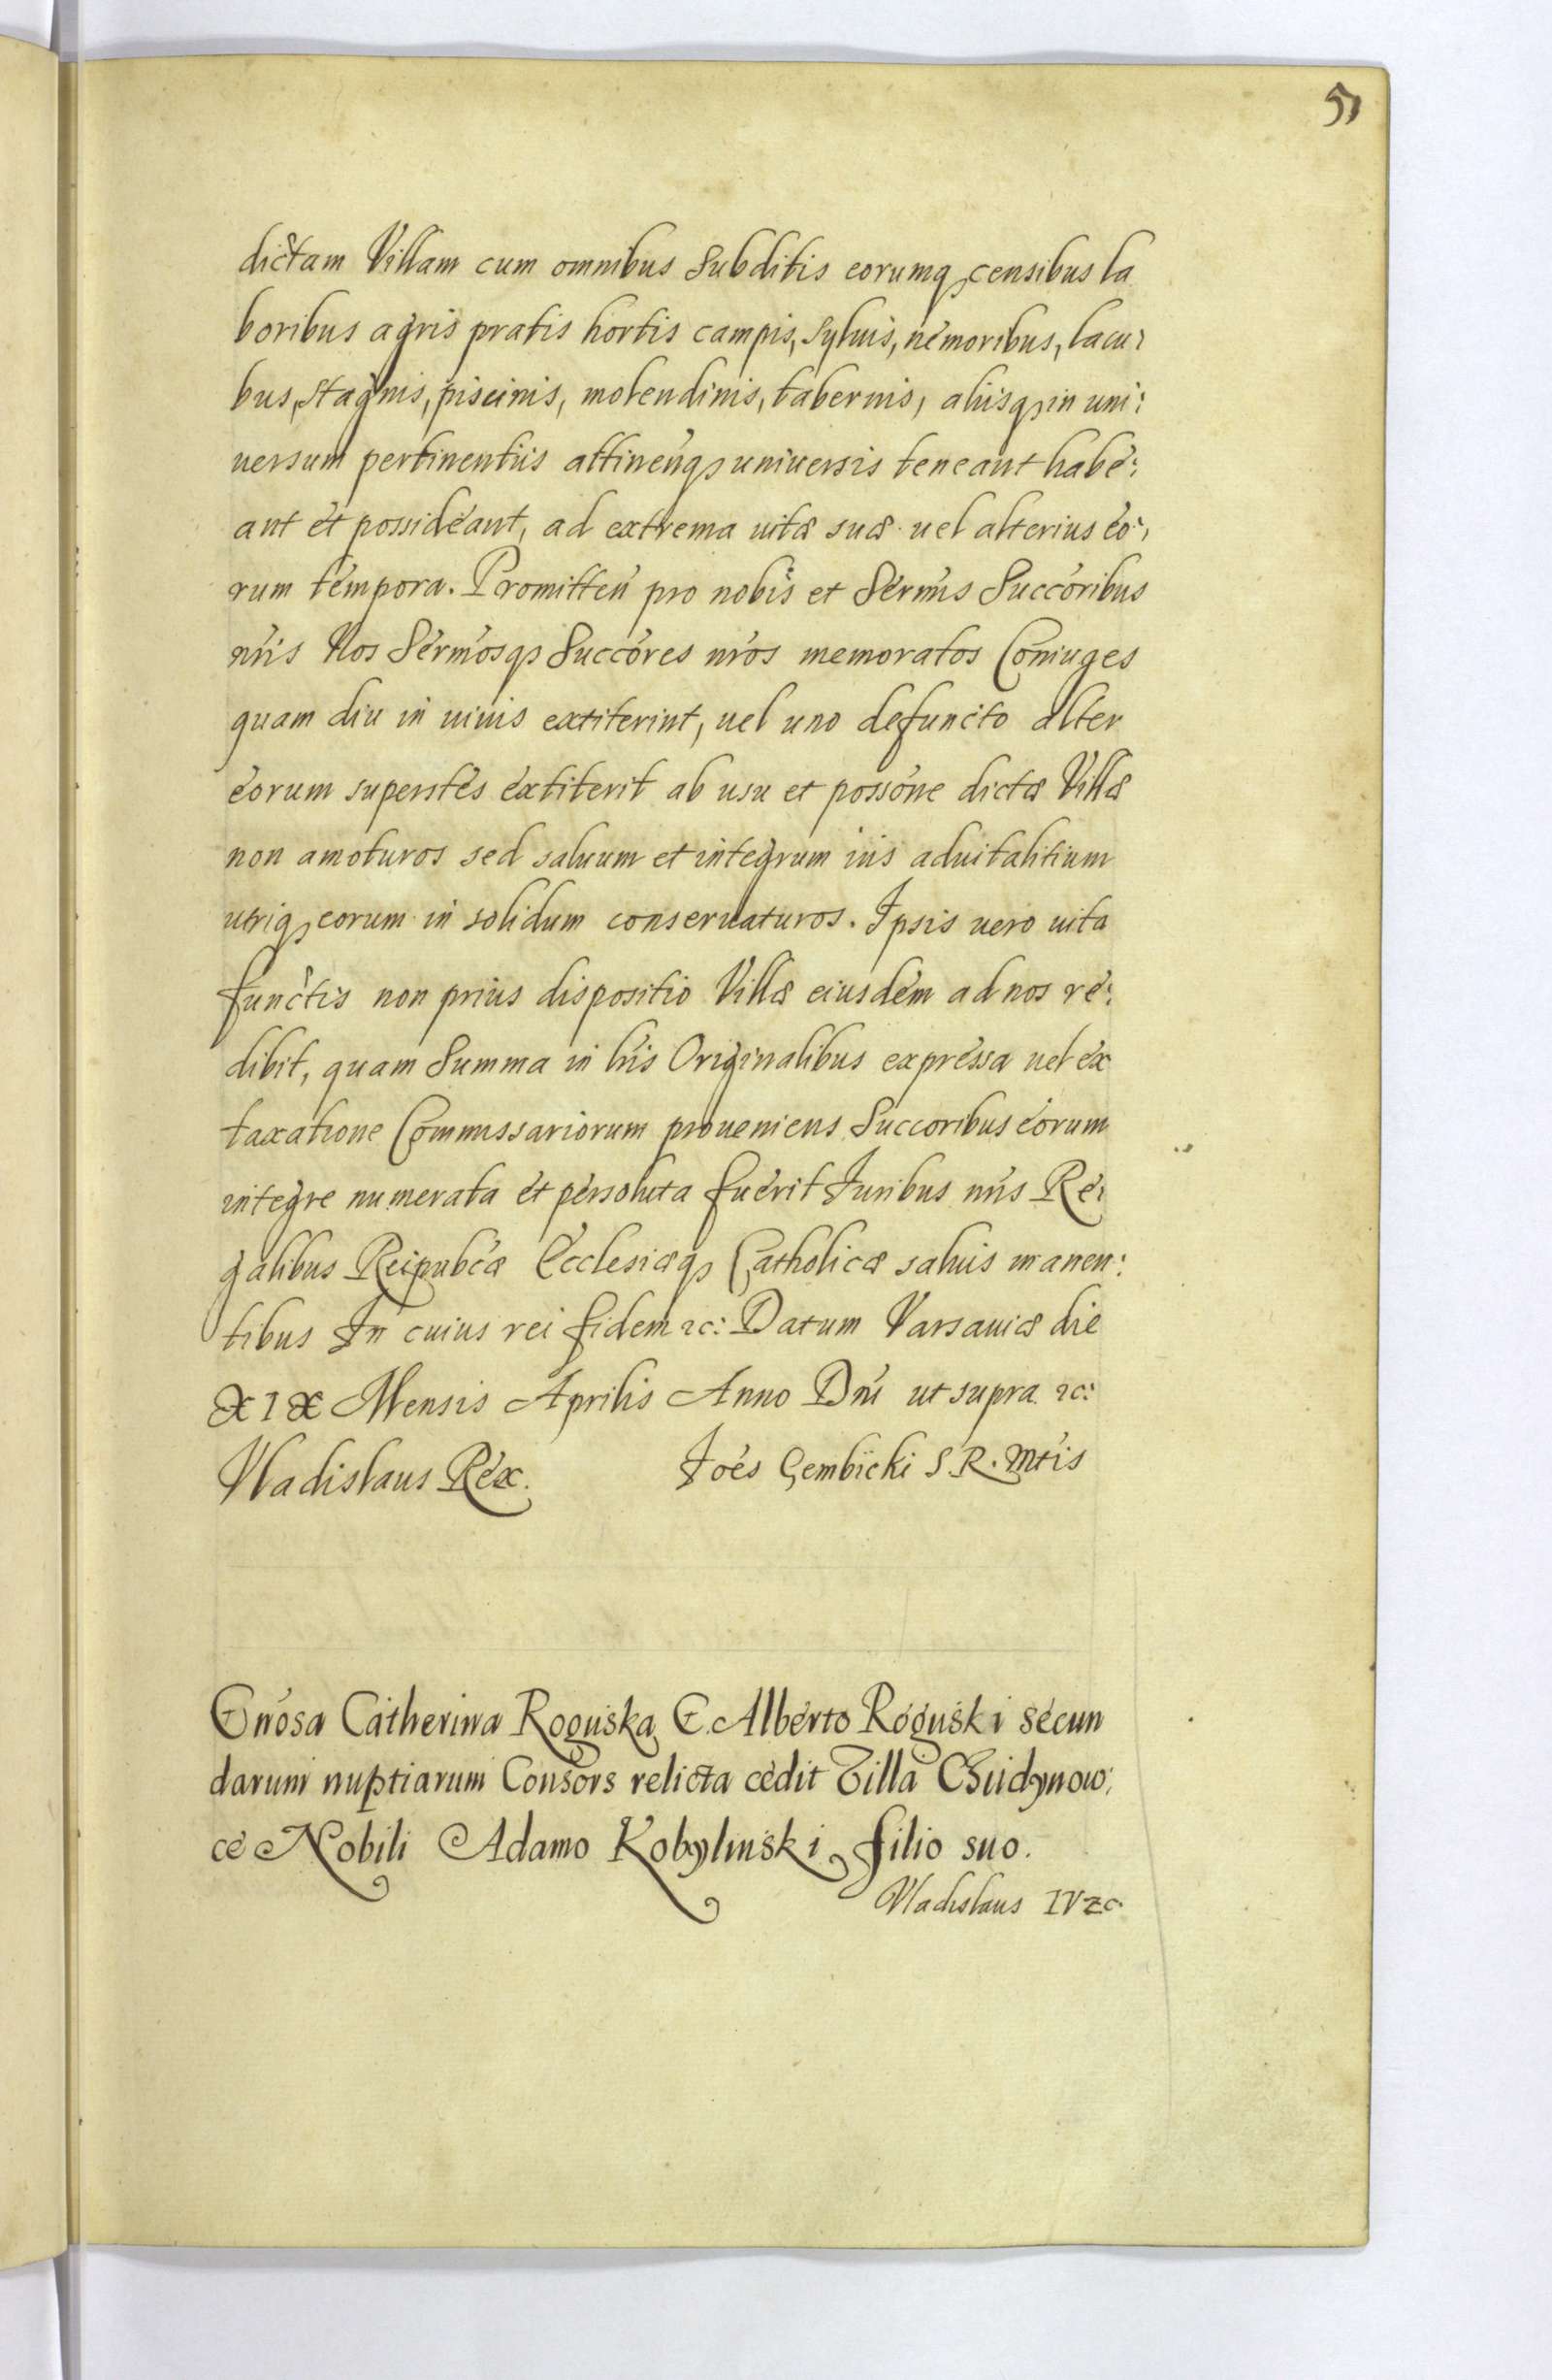 51
dictam Villam cum omnibus Subditis eorumq, censibus la
boribus agris pratis hortis campis, syluis, nemoribus, lacu:
bus, stagnis, piscinis, molendinis, tabernis, aliisq, in uni:
uersum pertinentiis attineńq, uniuersis teneant habe:
ant et possideant, ad extrema uitæ suæ uel alterius eo:
rum tempora. Promitteń pro nobis et Sermis Succoribus
nris Nos Sermosq, Succores nros memoratos Coniuges
quam diu in uiuis extiterint, uel uno defuncto alter
eorum superstes extiterit ab usu et possone dictæ Villæ
non amoturos sed saluum et integrum ius aduitalitium
utriq, eorum in solidum conseruaturos. Ipsis uero uita
functis non prius dispositio Villæ eiusdem ad nos re:
dibit, quam Summa in lris Originalibus expressa uel ex
taxatione Commissariorum proueniens Succoribus eorum
integre numerata et persoluta fuerit Iuribus nris Re:
galibus Reipubcæ Ecclesiæq, Catholicæ saluis manen:
tibus In cuius rei fidem &c: Datum Varsauiæ die
XIX Mensis Aprilis Anno Dni ut supra &c:
Vladislaus Rex. Joes Gembicki S. R. Mtis
Gnosa Catherina Roguska G. Alberto Roguski secun
darum nuptiarum Consors relicta cedit Villa Chudynow:
ce Nobili Adamo Kobylinski filio suo.
Vladislaus IV &c